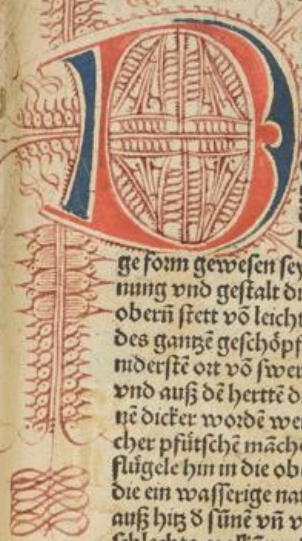 D
ge form gewesen sey
nung vnd gestalt di
obern̄ stett võ leicht
des gantzẽ geschöpf
niderstẽ ort võ swer
vnd auß dẽ herttẽ d
nẽ dicker wordẽ wei
cher pfütschẽ mãche
flügele hin in die ob
die ein wasserige nat
auß hitz d̕ sũne vñ v